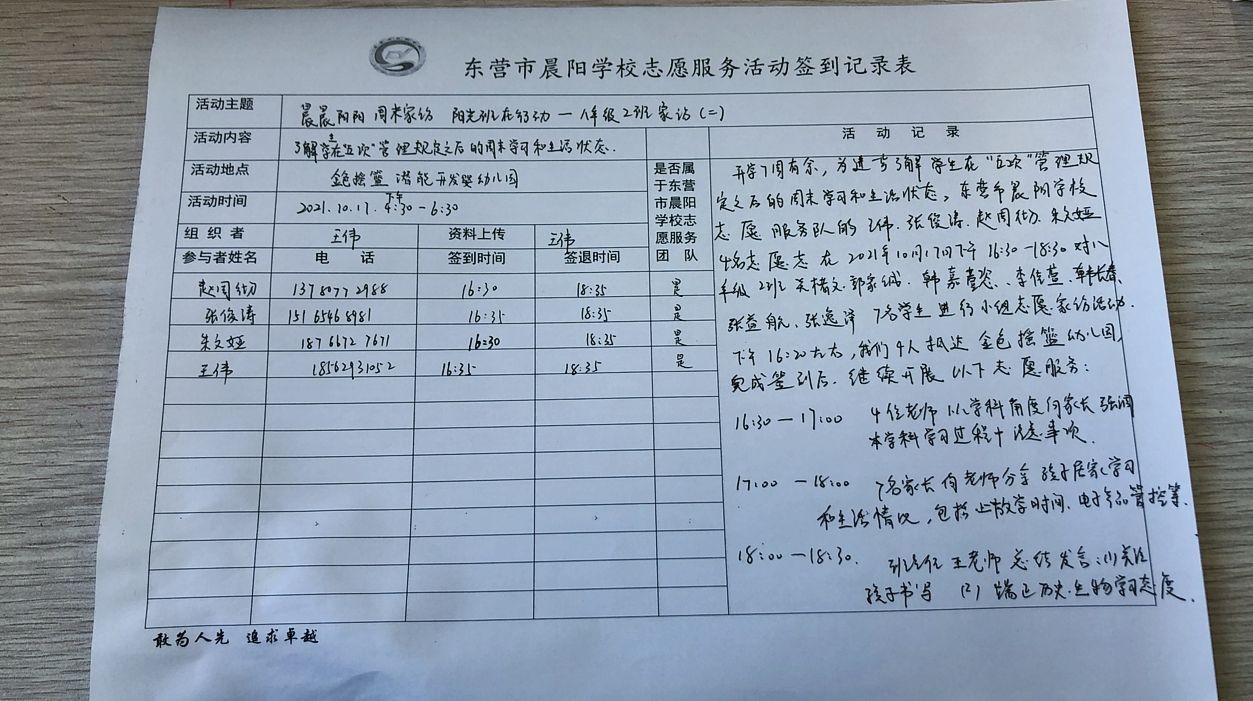 东营市晨阳学校志愿服务活动签到记录表
活动主题 晨晨阳阳 周末家访 阳光班在行动 — 八年级2班家访(二)
活动内容 了解学生在"五次"管理规定之后的周末学习和生活状态.
活动地点 金色摇篮 潜能开发婴幼儿园
活动时间 2021.10.17.下午4:30-6:30
组织者 王伟 资料上传 王伟
参与者姓名 电话 签到时间 签退时间
是否属
于东营
市晨阳
学校志
愿服务
团队
赵周彻 13780772988 16:30 18:35 是
张俊涛 15165468981 16:35 18:35 是
朱文娅 18766727671 16:30 18:35 是
王伟 18562931052 16:35 18:35 是
活动记录
开学7周有余，为进一步了解学生在"五次"管理规
定之后的周末学习和生活状态，东营市晨阳学校
志愿服务队的王伟、张俊涛、赵周彻、朱文娅
4名志愿志在2021年10月17日下午16:30-18:30对八
年级2班 郭家诚、韩嘉、李佳萱、
张益航、张逸泽 7名学生进行小组志愿家访活动.
下午16:20左右,我们4人抵达金色摇篮幼儿园,
完成签到后,继续开展以下志愿服务:
16:30—17:00 4位老师以学科角度向家长强调
本学科学习过程中注意事项.
17:00—18:00 7名家长向老师分享孩子居家学习
和生活情况,包括上放学时间、电子产品管控等.
18:00—18:30. 班主任王老师总结发言:(1)关注
孩子书写 (2)端正历史.生物学习态度.
敢为人先 追求卓越